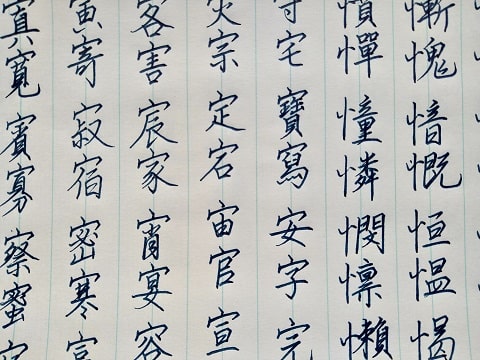 慚愧愔慨恒愠
憚憧憐憫懍懶
守宅寶寫安字完
灾宗定宕宙官宣
客害宸家宵宴容
寅寄寂宿密寒
寘寬賓寡察蜜